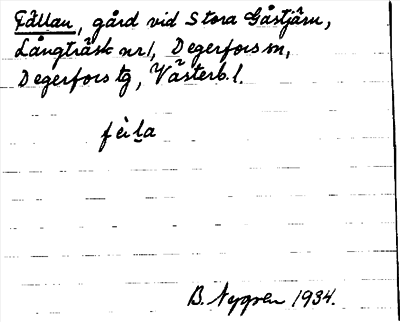 Fällan, gård vid Stora Gåstjärn,
Långträsk nr 1, Degerfors sn,
Degerfors tg, Västerb. l.
fèl̠a
B. Nygren 1934.